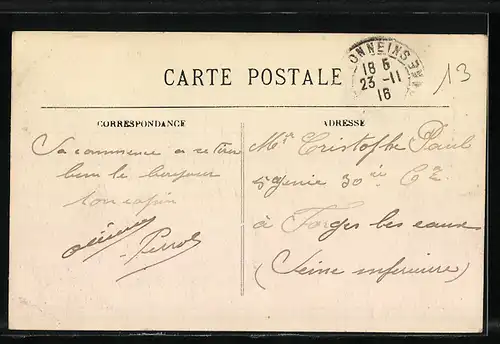 CARTE POSTALE
ONNEINS
18 5
23 -11
16
13
CORRESPONDANCE
ADRESSE
Sa commence a se
bien le bonjour
ton copin
Perrot
Mr Cristophe Paul
5e génie 30 Cie
à Forges les eaux
(Seine inférieure)